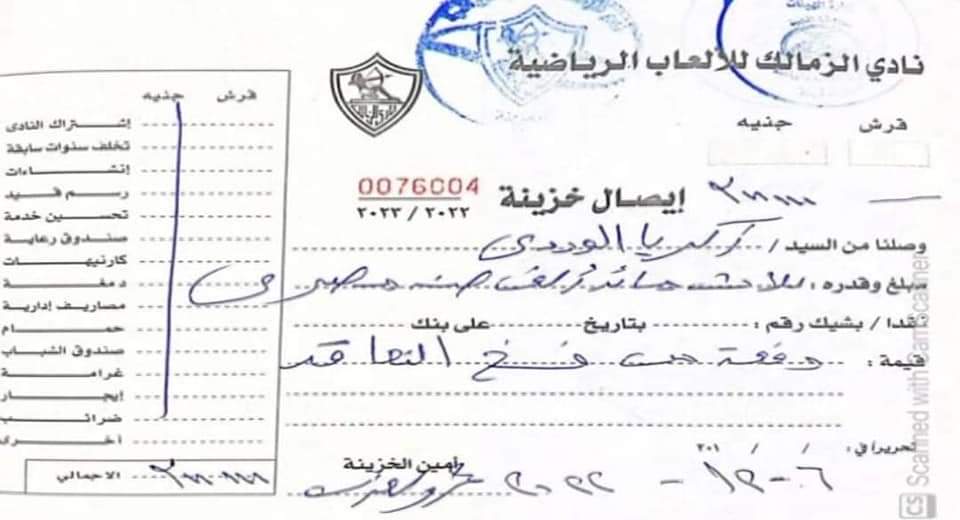 نادي الزمالك للألعاب الرياضية
قرش جنيه
إيصال خزينة
0076004
٢٠٢٢ / ٢٠٢٣
وصلنا من السيد / زكريا الوردى
مبلغ وقدره : ثلاثمائة ألف جنيه مصرى
نقدا / بشيك رقم : بتاريخ على بنك
قيمة : دفعة من فسخ التعاقد
تحريرا في : / / ٢٠١
٦ - ١٢ - ٢٠٢٢
أمين الخزينة
قرش جنيه
إشتراك النادى
تخلف سنوات سابقة
إنشاءات
رسم قيد
تحسين خدمة
صندوق رعاية
كارنيهات
دمغة
مصاريف إدارية
حمام
صندوق الشباب
غرامة
إيجار
ضرائب
أخرى
الاجمالي
CS Scanned with CamScanner